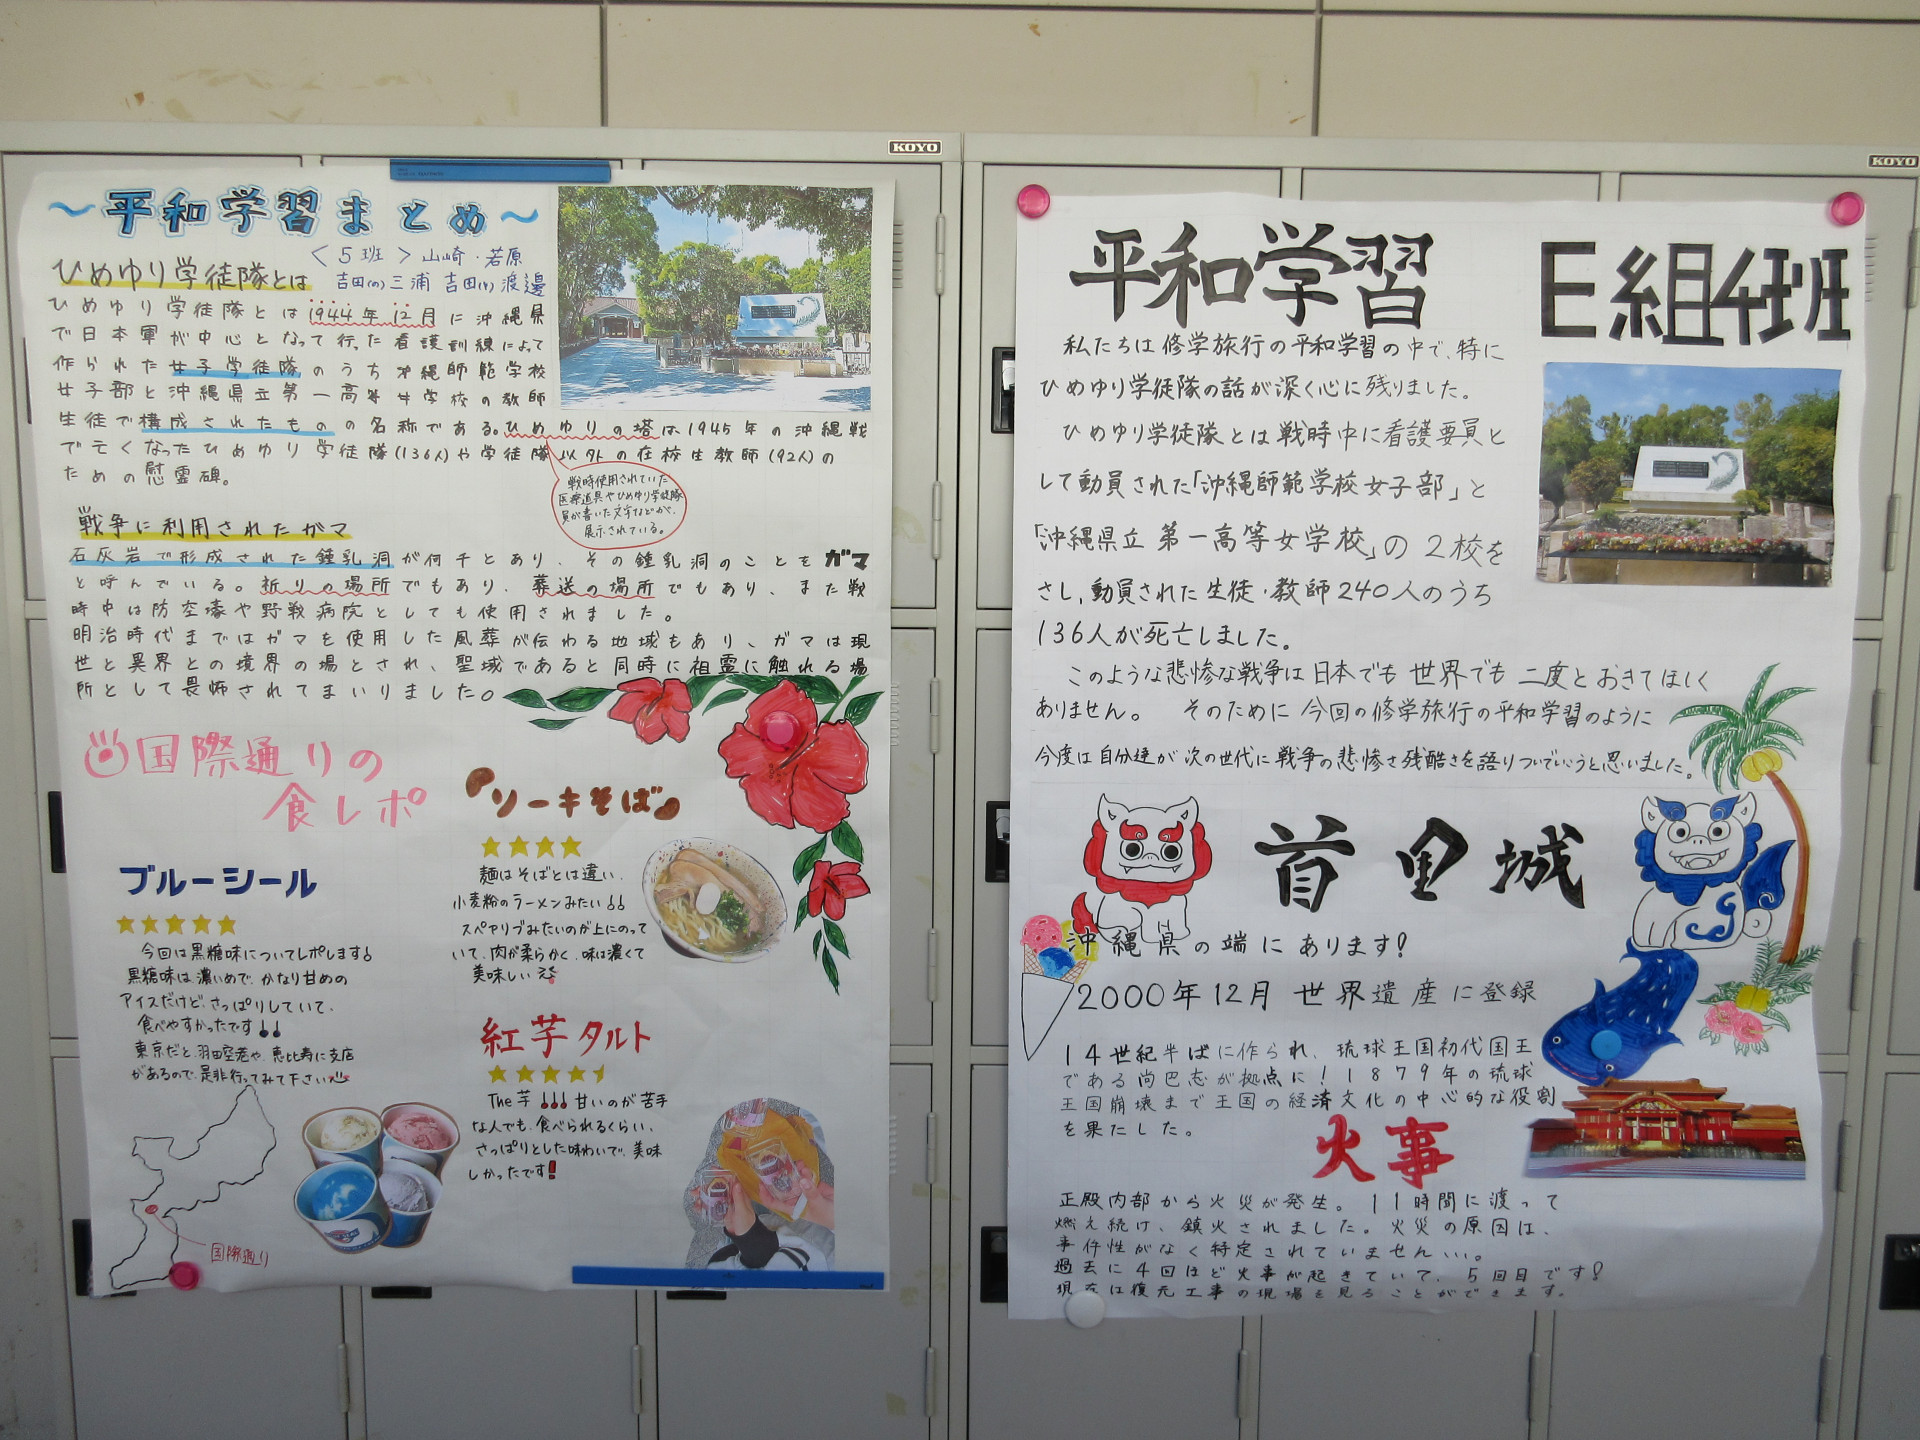 KOYO
KOYO
～平和学習まとめ～
＜5班＞山崎・若原
吉田(の)三浦 吉田(り)渡邊
ひめゆり学徒隊とは
ひめゆり学徒隊とは1944年12月に沖縄県
で日本軍が中心となって行った看護訓練によって
作られた女子学徒隊のうち沖縄師範学校
女子部と沖縄県立第一高等女学校の教師
生徒で構成されたものの名称である。ひめゆりの塔は1945年の沖縄戦
で亡くなったひめゆり学徒隊(136人)や学徒隊以外の在校生教師(92人)の
ための慰霊碑。
戦時使用されていた
医療道具やひめゆり学徒隊
員が書いた文字などが、
展示されている。
戦争に利用されたガマ
石灰岩で形成された鍾乳洞が何千とあり、その鍾乳洞のことをガマ
と呼んでいる。祈りの場所でもあり、葬送の場所でもあり、また戦
時中は防空壕や野戦病院としても使用されました。
明治時代まではガマを使用した風葬が伝わる地域もあり、ガマは現
世と異界との境界の場とされ、聖域であると同時に祖霊に触れる場
所として畏怖されてまいりました。
国際通りの
食レポ
ブルーシール
今回は黒糖味についてレポします!
黒糖味は濃いめで、かなり甘めの
アイスだけど、さっぱりしていて、
食べやすかったです!!
東京だと、羽田空港や、恵比寿に支店
があるので、是非行ってみて下さい
国際通り
ソーキそば
麺はそばとは違い、
小麦粉のラーメンみたい!!
スペアリブみたいのが上にのって
いて、肉が柔らかく、味は濃くて
美味しい
紅芋タルト
The芋!!!甘いのが苦手
な人でも、食べられるくらい、
さっぱりとした味わいで、美味
しかったです!
平和学習 E組4班
私たちは修学旅行の平和学習の中で、特に
ひめゆり学徒隊の話が深く心に残りました。
ひめゆり学徒隊とは戦時中に看護要員と
して動員された「沖縄師範学校女子部」と
「沖縄県立第一高等女学校」の2校を
さし、動員された生徒・教師240人のうち
136人が死亡しました。
このような悲惨な戦争は日本でも世界でも二度とおきてほしく
ありません。 そのために今回の修学旅行の平和学習のように
今度は自分達が次の世代に戦争の悲惨さ残酷さを語りついでいこうと思いました。
首里城
沖縄県の端にあります!
2000年12月 世界遺産に登録
14世紀半ばに作られ、琉球王国初代国王
である尚巴志が拠点に!1879年の琉球
王国崩壊まで王国の経済文化の中心的な役割
を果たした。
火事
正殿内部から火災が発生。11時間に渡って
燃え続け、鎮火されました。火災の原因は、
事件性がなく特定されていません...。
過去に4回ほど火事が起きていて、5回目です!
現在は復元工事の現場を見ることができます。